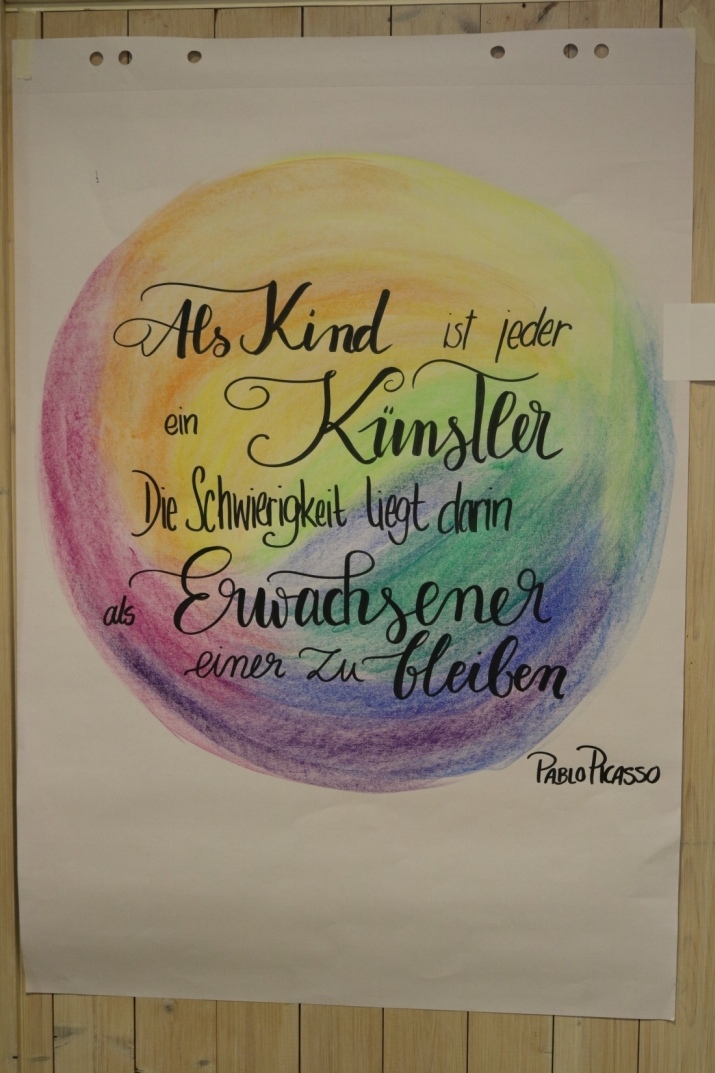 Als Kind ist jeder
ein Künstler
Die Schwierigkeit liegt darin
als Erwachsener
einer zu bleiben
PABLO PICASSO